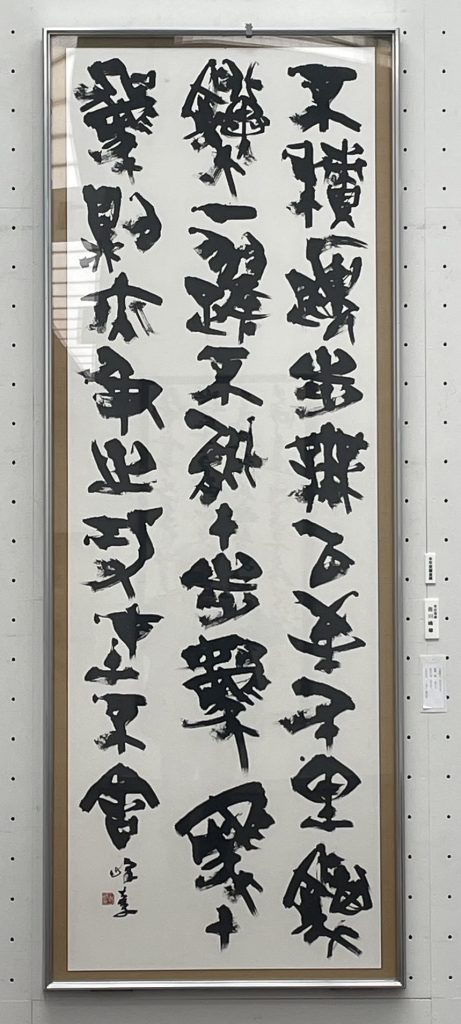 不積蹞步無以致千里騏
驥一躍不能十步駑馬十
駕則亦及之功在不舍